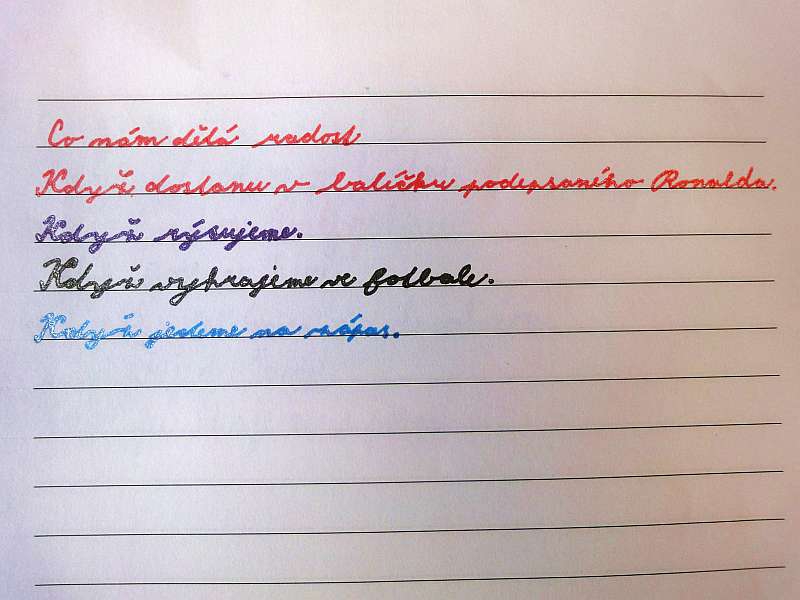 Co nám dělá radost
Když dostanu v balíčku podepsaného Ronalda.
Když rýsujeme.
Když vyhrajeme ve fotbale.
Když jedeme na zápas.